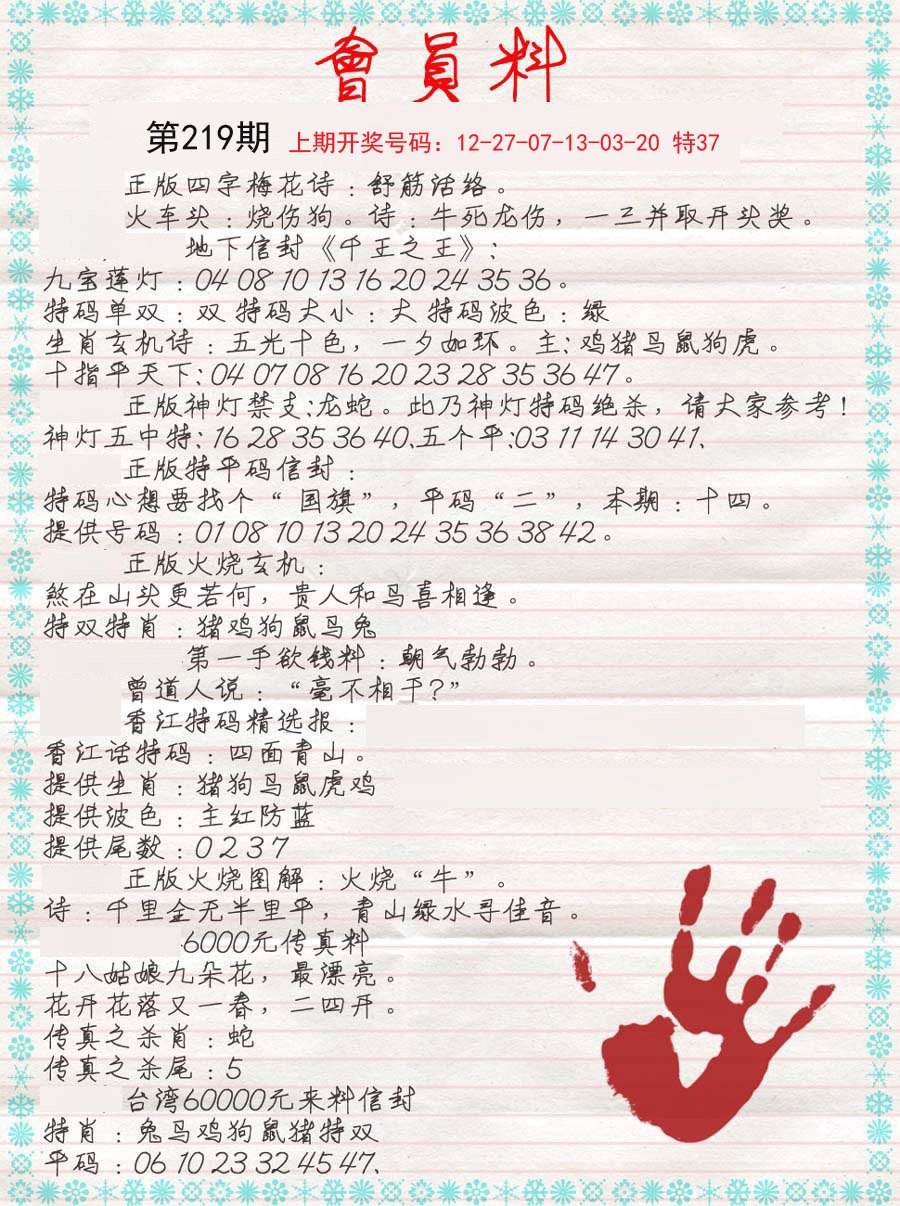 會員料
第219期 上期开奖号码：12-27-07-13-03-20 特37
正版四字梅花诗：舒筋活络。
火车头：烧伤狗。诗：牛死龙伤，一三并取开头奖。
地下信封《千王之王》：
九宝莲灯：04 08 10 13 16 20 24 35 36。
特码单双：双 特码大小：大 特码波色：绿
生肖玄机诗：五光十色，一夕如环。主：鸡猪马鼠狗虎。
十指平天下：04 07 08 16 20 23 28 35 36 47。
正版神灯禁支：龙蛇。此乃神灯特码绝杀，请大家参考！
神灯五中特：16 28 35 36 40、五个平：03 11 14 30 41、
正版特平码信封：
特码心想要找个“国旗”，平码“二”，本期：十四。
提供号码：01 08 10 13 20 24 35 36 38 42。
正版火烧玄机：
煞在山头更若何，贵人和马喜相逢。
特双特肖：猪鸡狗鼠马兔
第一手欲钱料：朝气勃勃。
曾道人说：“毫不相干？”
香江特码精选报：
香江话特码：四面青山。
提供生肖：猪狗马鼠虎鸡
提供波色：主红防蓝
提供尾数：0 2 3 7
正版火烧图解：火烧“牛”。
诗：千里金无半里平，青山绿水寻佳音。
6000元传真料
十八姑娘九朵花，最漂亮。
花开花落又一春，二四开。
传真之杀肖：蛇
传真之杀尾：5
台湾60000元来料信封
特肖：兔马鸡狗鼠猪特双
平码：06 10 23 32 45 47、